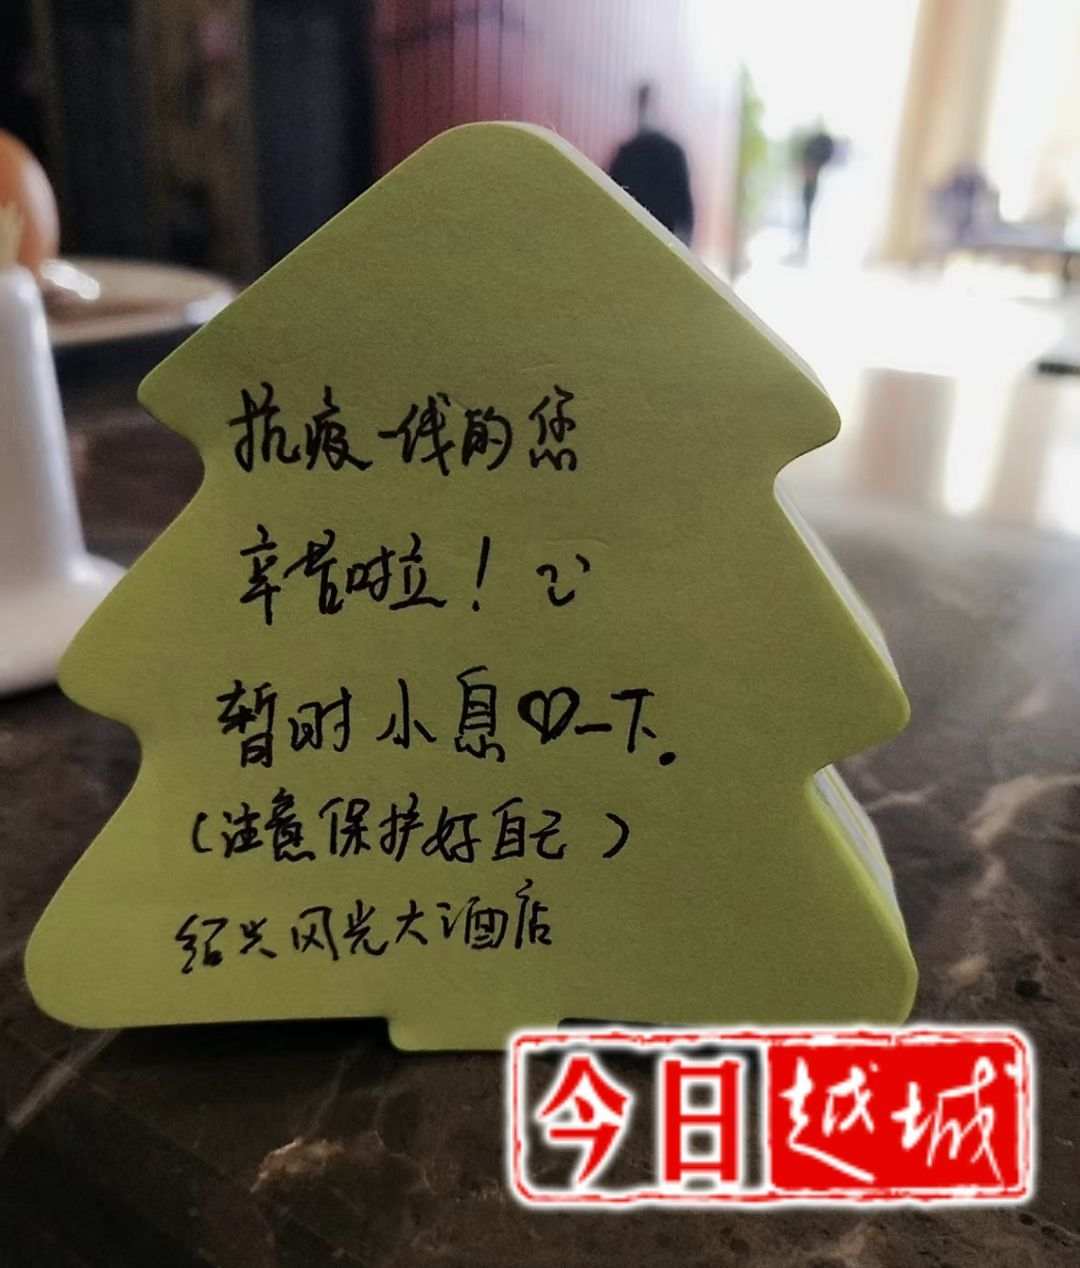 抗疫一线的您
辛苦啦！
暂时小息♡一下.
（注意保护好自己）
绍兴风光大酒店
今日越城